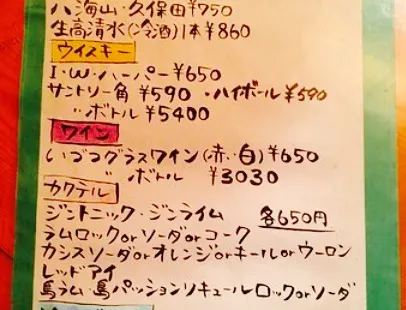 八海山・久保田¥750
生高清水(冷酒)1本¥860
ウイスキー
I・W・ハーパー¥650
サントリー角 ¥590 ・ハイボール¥590
〃 ボトル ¥5400
ワイン
いづつグラスワイン(赤・白)¥650
〃 ボトル ¥3030
カクテル
ジントニック・ジンライム 各650円
ラムロックorソーダorコーク
カシスソーダorオレンジorキールorウーロン
レッドアイ
島ラム・島パッションリキュールロックorソーダ